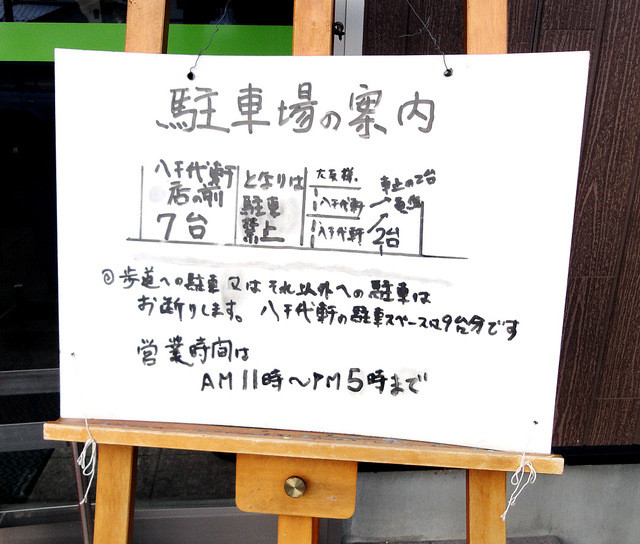 駐車場の案内
八千代軒
店の前
7台
となりは
駐車
禁止
大家様.
八千代軒
八千代軒
車止の2台
2台
◎歩道への駐車 又は それ以外への駐車は
お断りします。 八千代軒の駐車スペースは9台分です
営業時間は
AM11時〜PM5時まで